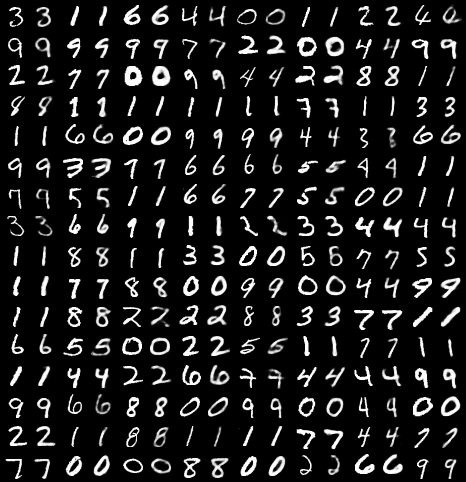 3 3 1 1 6 6 4 4 0 0 1 1 2 2 4
9 9 9 9 9 9 7 7 2 2 0 0 4 4 9 9
2 2 7 7 0 0 9 9 4 4 2 2 8 8 1 1
8 8 1 1 1 1 1 1 1 1 7 7 1 1 3 3
1 1 6 6 0 0 9 9 9 9 4 4 3 3 6 6
9 9 3 3 7 7 6 6 6 6 5 5 4 4 1 1
9 5 5 1 1 6 6 7 7 5 5 0 0 1 1
3 3 6 6 9 9 1 1 2 2 3 3 4 4 4 4
1 1 8 8 1 1 3 3 0 0 5 7 7 5 5
1 1 7 7 8 8 0 0 9 9 0 0 4 4 9 9
1 1 8 8 2 2 2 2 8 8 3 3 7 7 1 1
6 6 5 5 0 0 2 2 5 5 1 1 7 7 1 1
1 1 4 4 2 2 6 6 7 7 4 4 4 4 9 9
9 9 6 6 8 8 0 0 9 9 0 0 4 4 0 0
2 2 1 1 8 8 1 1 1 1 7 7 4 4 7 7
7 7 0 0 0 0 8 8 0 0 2 2 6 6 9 9